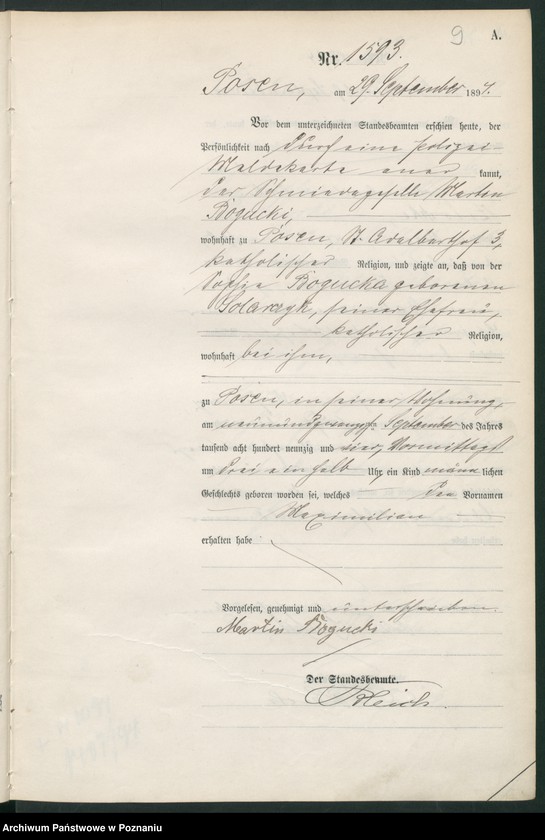 9
A.
Nr. 1593.
Posen, am 29. September 1894.
Vor dem unterzeichneten Standesbeamten erschien heute, der
Persönlichkeit nach durch eine polizei-
Meldekarte aner kannt,
der Schmiedegeselle Martin
Bogucki,
wohnhaft zu Posen, St. Adalberthof 3,
katholischer Religion, und zeigte an, daß von der
Sophie Bogucka geborenen
Solarczyk, seiner Ehefrau,
katholischer Religion,
wohnhaft bei ihm,
zu Posen, in seiner Wohnung,
am neunundzwanzigsten September des Jahres
tausend acht hundert neunzig und vier, Vormittags
um drei einhalb Uhr, ein Kind männ lichen
Geschlechts geboren worden sei, welches den Vornamen
Maximilian
erhalten habe
Vorgelesen, genehmigt und unterschrieben.
Martin Bogucki
Der Standesbeamte.
Archiwum Państwowe w Poznaniu